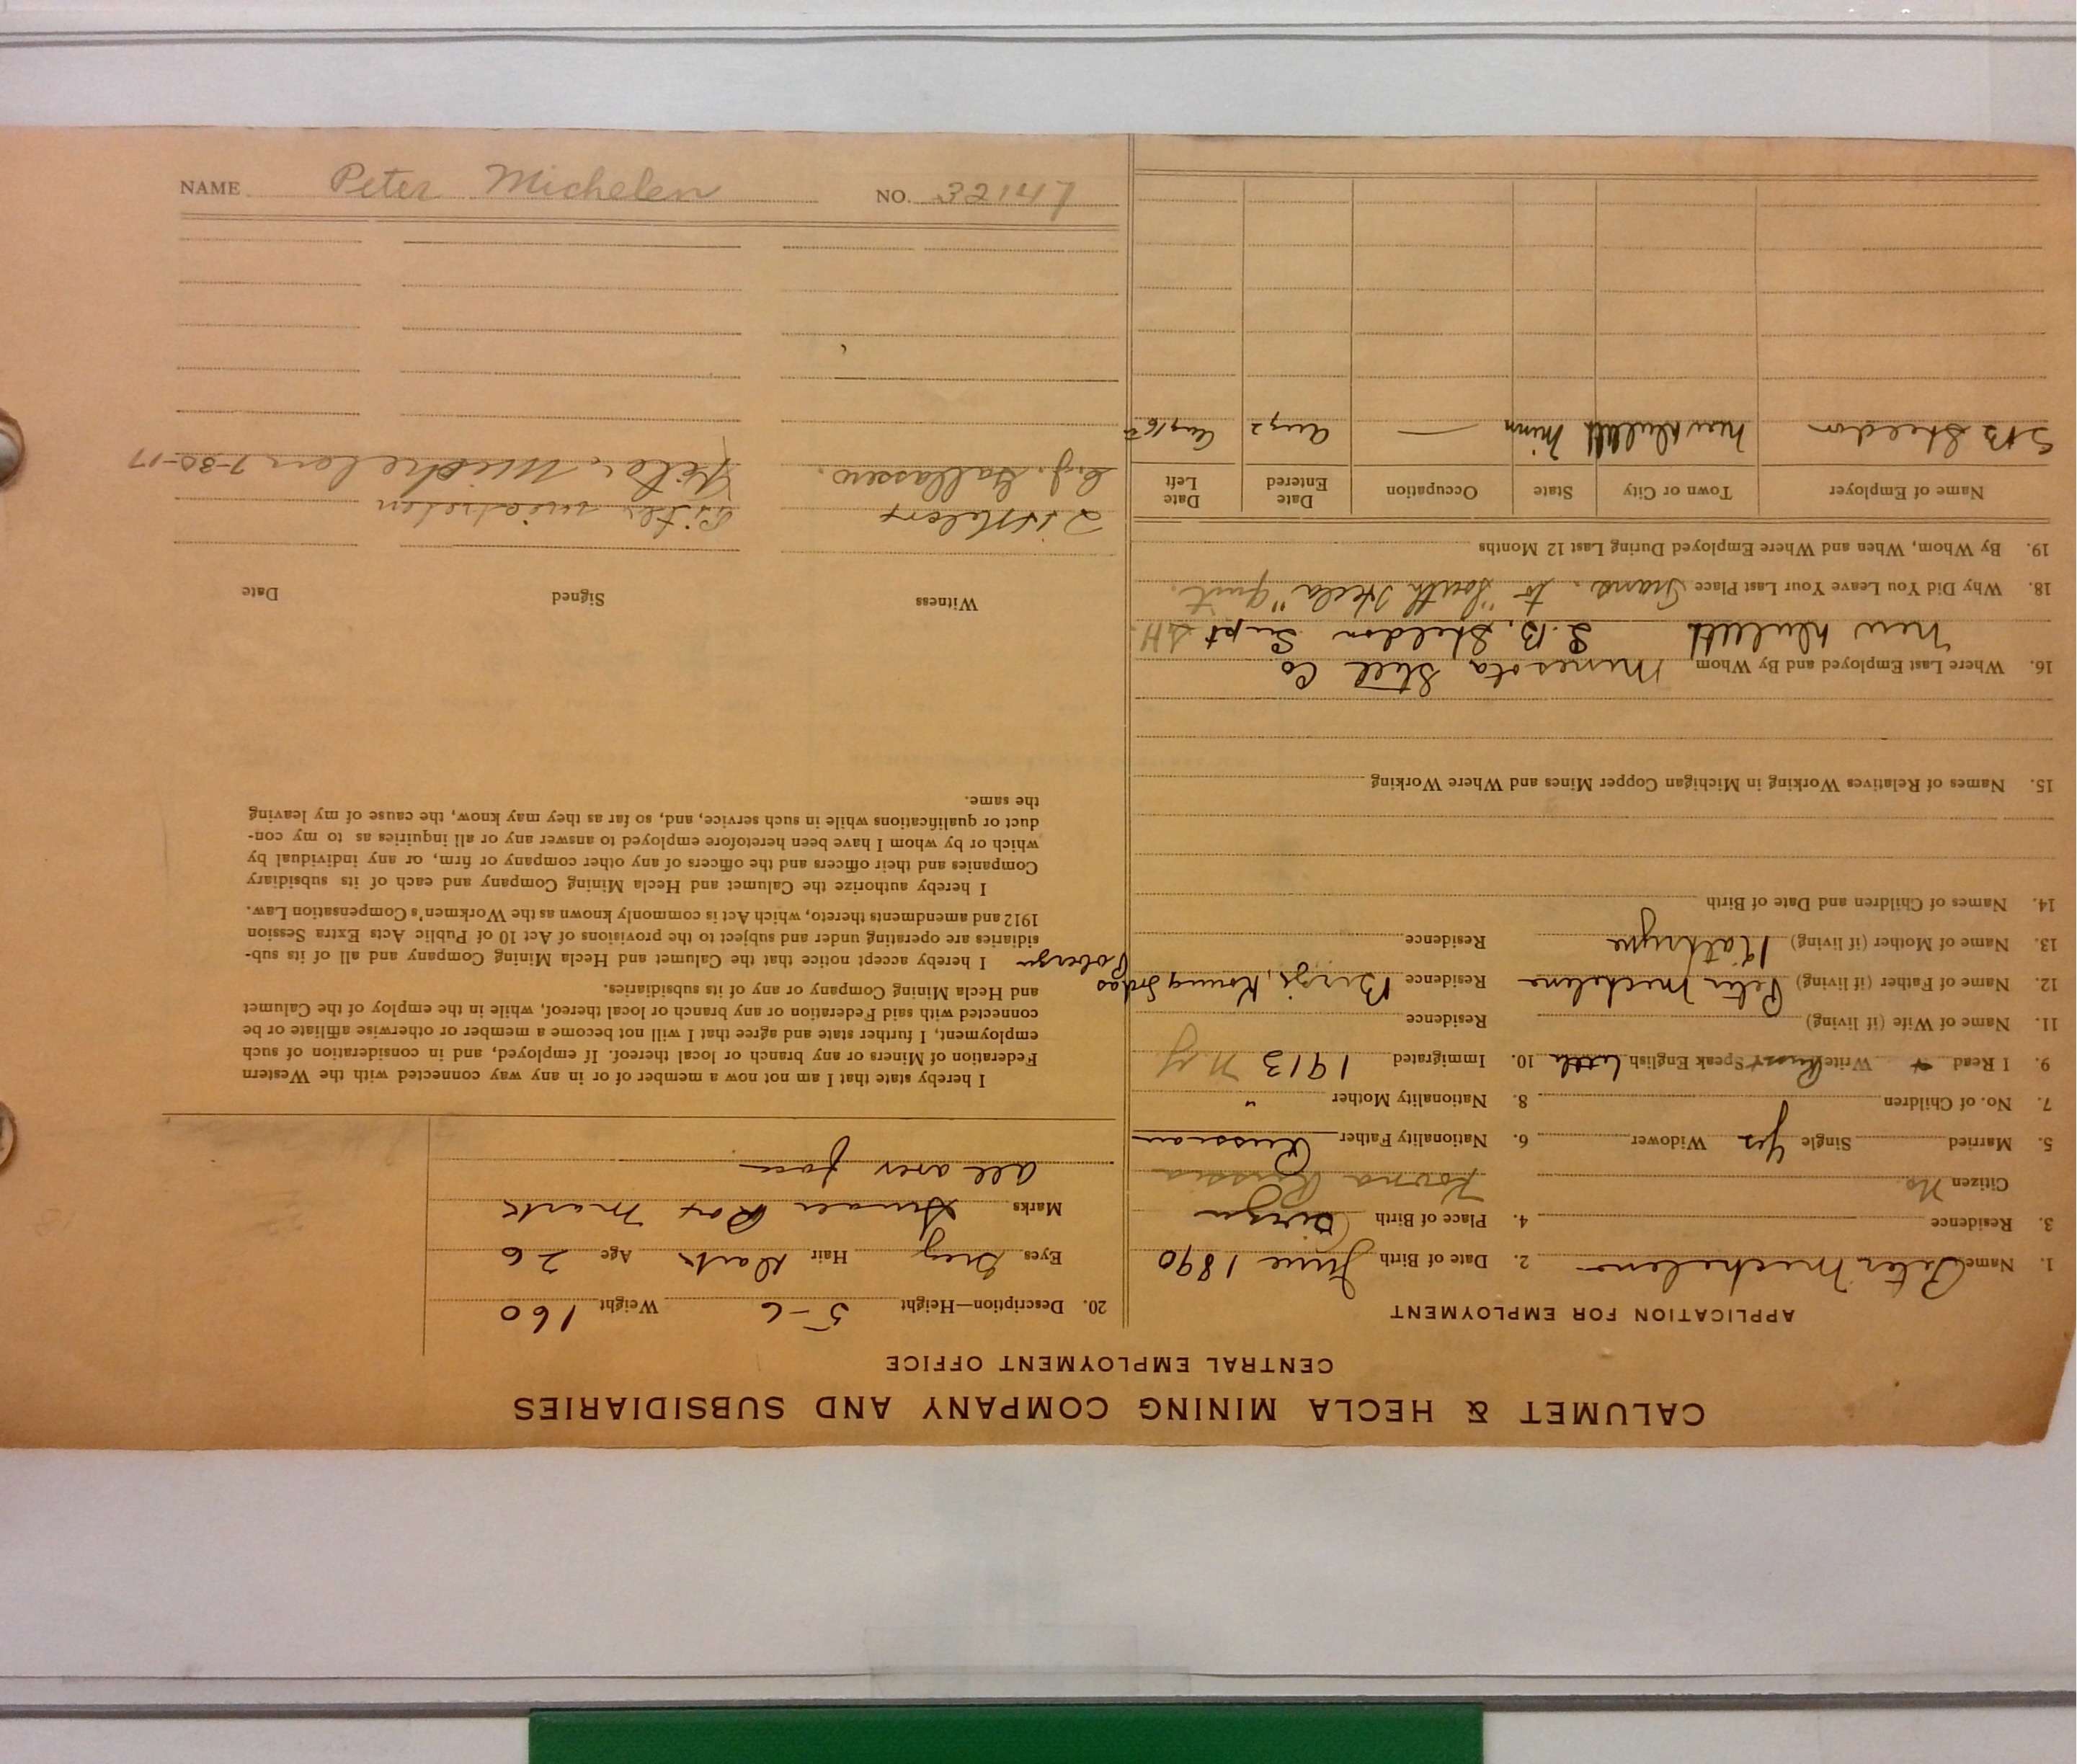 NAME Peter Michelen NO. 32147
CALUMET & HECLA MINING COMPANY AND SUBSIDIARIES
CENTRAL EMPLOYMENT OFFICE
APPLICATION FOR EMPLOYMENT
1. Name Peter Michelen 2. Date of Birth June 1890
3. Residence 4. Place of Birth
Citizen No Kovna Russia
5. Married Single Yes Widower 6. Nationality Father Russian
7. No. of Children 8. Nationality Mother "
9. I Read Write Speak English little 10. Immigrated 1913 N Y
11. Name of Wife (if living) Residence
12. Name of Father (if living) Peter Michelen Residence
13. Name of Mother (if living) Kathryne Residence
14. Names of Children and Date of Birth
15. Names of Relatives Working in Michigan Copper Mines and Where Working
16. Where Last Employed and By Whom Minnesota Steel Co.
New Duluth S.B. Sheldon Supt
18. Why Did You Leave Your Last Place Trans. to "South Hecla" quit.
19. By Whom, When and Where Employed During Last 12 Months
Name of Employer Town or City State Occupation Date Entered Date Left
S B Sheldon New Duluth Minn — Aug 2 Aug 16
20. Description—Height 5-6 Weight 160
Eyes Grey Hair Dark Age 26
Marks Small Pox Mark
all over face
I hereby state that I am not now a member of or in any way connected with the Western
Federation of Miners or any branch or local thereof. If employed, and in consideration of such
employment, I further state and agree that I will not become a member or otherwise affiliate or be
connected with said Federation or any branch or local thereof, while in the employ of the Calumet
and Hecla Mining Company or any of its subsidiaries.
I hereby accept notice that the Calumet and Hecla Mining Company and all of its sub-
sidiaries are operating under and subject to the provisions of Act 10 of Public Acts Extra Session
1912 and amendments thereto, which Act is commonly known as the Workmen's Compensation Law.
I hereby authorize the Calumet and Hecla Mining Company and each of its subsidiary
Companies and their officers and the officers of any other company or firm, or any individual by
which or by whom I have been heretofore employed to answer any or all inquiries as to my con-
duct or qualifications while in such service, and, so far as they may know, the cause of my leaving
the same.
Witness Signed Date
Peter Michelen
Peter Michelen 7-30-17